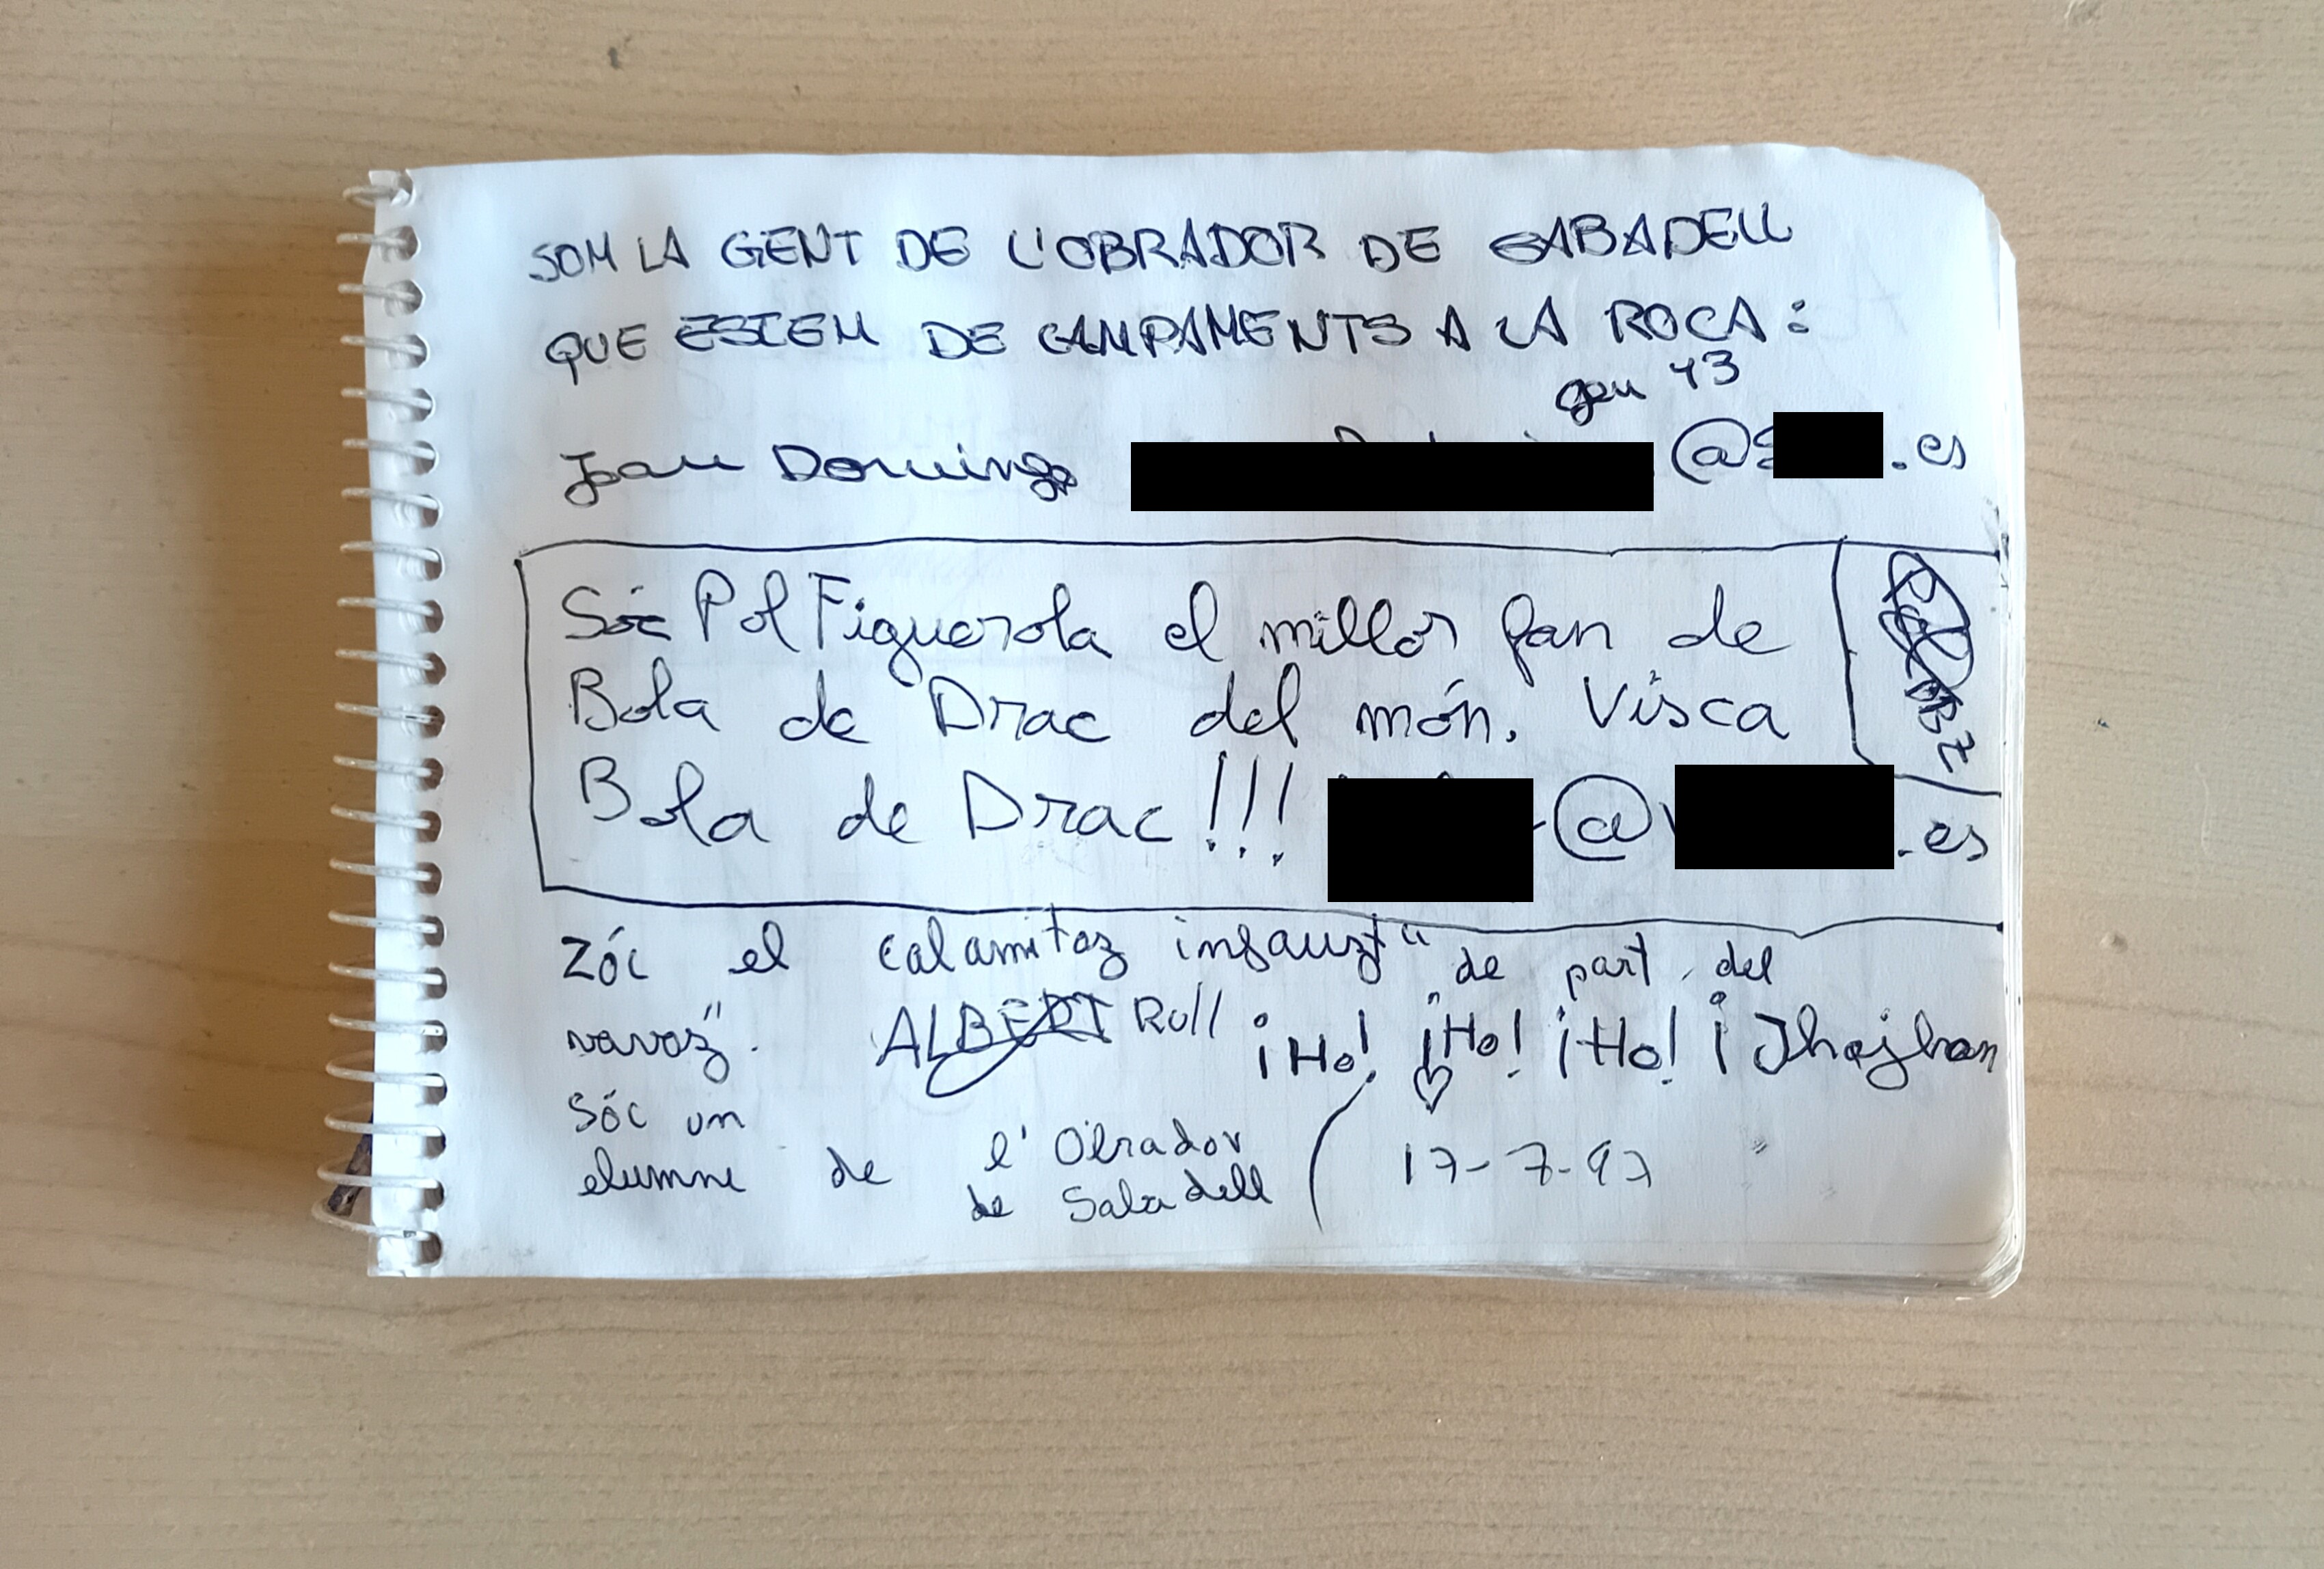 SOM LA GENT DE L'OBRADOR DE SABADELL
QUE ESTEM DE CAMPAMENTS A LA ROCA:
Joan Domingo @ .es
Sóc Pol Figuerola el millor fan de
Bola de Drac del món. Visca
Bola de Drac!!! @ .es
Zóc el calamitoz infauzt "de part del
vavaz". ALBERT Rull ¡Ho! ¡Ho! ¡Ho! ¡
Sóc un
alumne de l'Obrador
de Sabadell
17-7-97